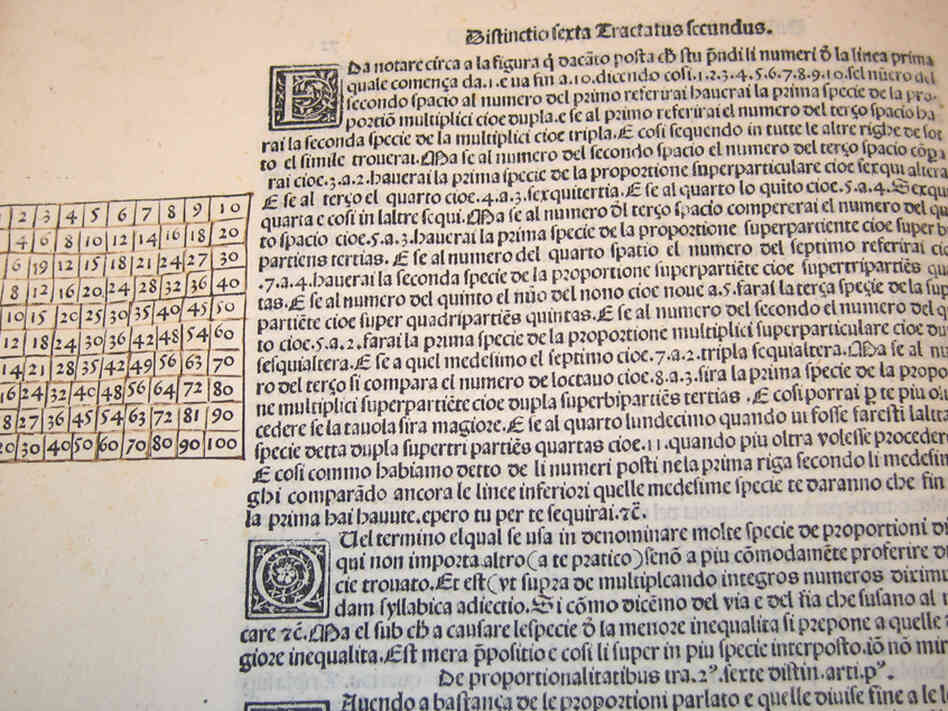 Distinctio sexta Tractatus secundus.
E da notare circa a la figura q̃ dacãto posta ch̃ stu p̃ndi li numeri õ la linea prima
quale comença da.1.e va fin a.10.dicendo cosi.1.2.3.4.5.6.7.8.9.10.sel nũero del
secondo spacio al numero del primo referirai hauerai la prima specie de la pro-
portiõ multiplici cioe dupla.e se al primo referirai el numero del terço spacio ha
rai la seconda specie de la multiplici cioe tripla.E cosi sequendo in tutte le altre righe de sot
to el simile trouerai.Ma se al numero del secondo spacio el numero del terço spacio cõp̱a
rai cioe.3.a.2.hauerai la prima specie de la proportione superparticulare cioe sexqui altera
E se al terço el quarto cioe.4.a.3.sexquitertia.E se al quarto lo quito cioe.5.a.4.Sexqu
quarta e cosi in laltre sequi.Ma se al numero ðl terço spacio compererai el numero del qu
to spacio cioe.5.a.3.hauerai la prima specie de la proportione superpartiente cioe super b
partiens tertias. E se al numero del quarto spatio el numero del septimo referirai cio
.7.a.4.hauerai la seconda specie de la proportione superpartiẽte cioe supertripartiẽs qu
tas.E se al numero del quinto el nũo del nono cioe noue a.5.farai la terça specie de la sup
partiẽte cioe super quadripartiẽs quintas.E se al numero del secondo el numero del q
to cioe.5.a.2.farai la prima specie de la proportione multiplici superparticulare cioe du
sesquialtera.E se a quel medesimo el septimo cioe.7.a.2.tripla sequialtera.Ma se al nu
ro del terço si compara el numero de loctauo cioe.8.a.3.sira la prima specie de la propo
ne multiplici superpartiẽte cioe dupla superbipartiẽs tertias .E cosi porrai p̱ te piu ol
cedere se la tauola sira magiore.E se al quarto lundecimo quando vi fosse faresti laltr
specie detta dupla supertri partiẽs quartas cioe.11.quando piu oltra volesse proceder
E cosi commo habiamo detto de li numeri posti nela prima riga secondo li medesim
ghi comparãdo ancora le linee inferiori quelle medesime specie te daranno che fin
la prima hai hauute.epero tu per te sequirai.⁊c̃.
Quel termino elqual se usa in denominare molte specie de proportioni d
qui non importa altro(a te pratico)senõ a piu cõmodamẽte proferire d
cie trouato.Et est(vt supra de multiplcando integros numeros diximu
dam syllabica adiectio.Si cõmo dicẽmo del via e del fia che susano al
care ⁊c̃.Ma el sub ch̃ a causare lespecie õ la menore inequalita si prepone a quelle
giore inequalita.Est mera p̃positio e cosi li super in piu specie interposto.iõ nõ mi
De proportionalitatibus tra.2ꝰ.sexte distin.arti.pꝰ.
Auendo a bastança de le proportioni parlato e quelle diuise fine a le
2 3 4 5 6 7 8 9 10
4 6 8 10 12 14 16 18 20
6 19 12 15 18 21 24 27 30
8 12 16 20 24 28 32 36 40
10 15 20 25 30 35 40 45 50
12 18 24 30 36 42 48 54 60
14 21 28 35 42 49 56 63 70
16 24 32 40 48 56 64 72 80
8 27 36 45 54 63 72 81 90
20 30 40 50 60 70 80 90 100